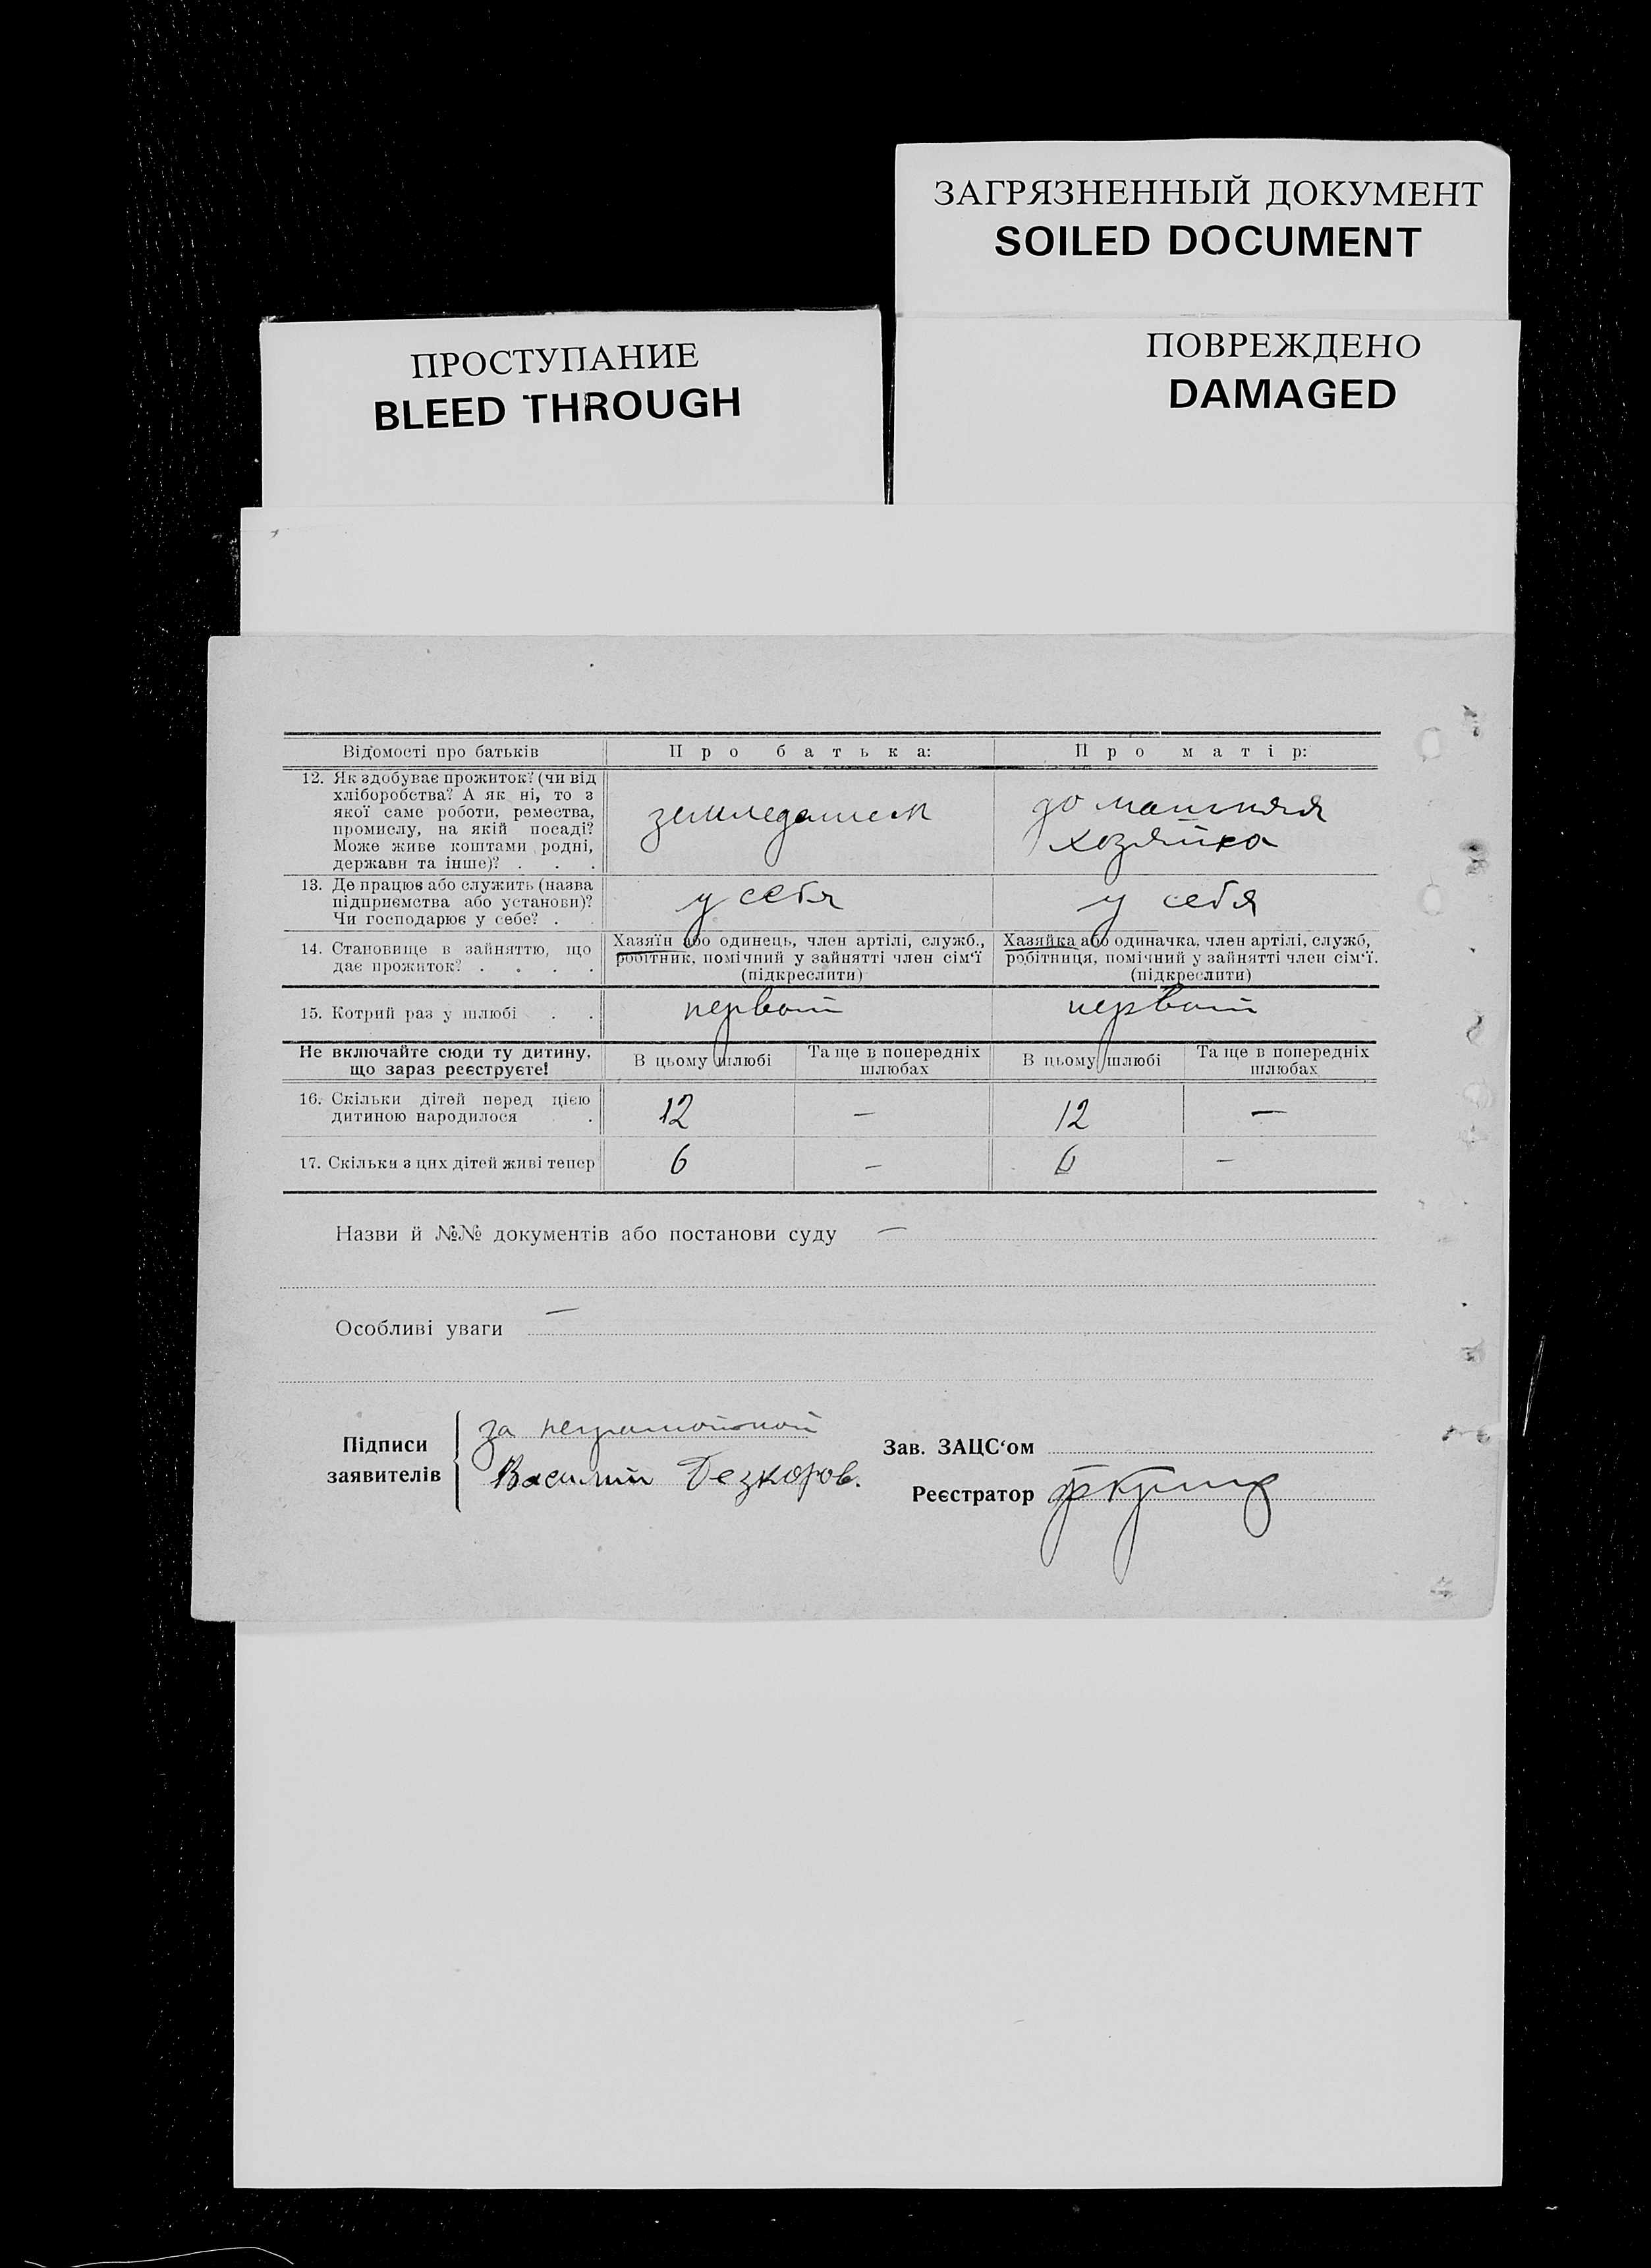 ЗАГРЯЗНЕННЫЙ ДОКУМЕНТ
SOILED DOCUMENT
ПРОСТУПАНИЕ
BLEED THROUGH
ПОВРЕЖДЕНО
DAMAGED
Відомості про батьків
Про батька:
Про матір:
12. Як здобуває прожиток? (чи від
хліборобства? А як ні, то з
якої саме роботи, ремества,
промислу, на якій посаді?
Може живе коштами родні,
держави та інше)? . . .
земледелием
домашняя
хозяйка
13. Де працює або служить (назва
підприємства або установи)?
Чи господарює у себе? . .
у себя
у себя
14. Становище в зайняттю, що
дає прожиток? . . . .
Хазяїн або одинець, член артілі, служб.,
робітник, помічний у зайнятті член сім'ї
(підкреслити)
Хазяйка або одиначка, член артілі, служб,
робітниця, помічний у зайнятті член сім'ї.
(підкреслити)
15. Котрий раз у шлюбі . .
первый
первый
Не включайте сюди ту дитину,
що зараз реєструєте!
В цьому шлюбі
Та ще в попередніх
шлюбах
В цьому шлюбі
Та ще в попередніх
шлюбах
16. Скільки дітей перед цією
дитиною народилося .
12
—
12
—
17. Скільки з цих дітей живі тепер
6
—
6
—
Назви й №№ документів або постанови суду —
Особливі уваги —
Підписи
заявителів
за неграмотной
Василий
Зав. ЗАЦС'ом
Реєстратор